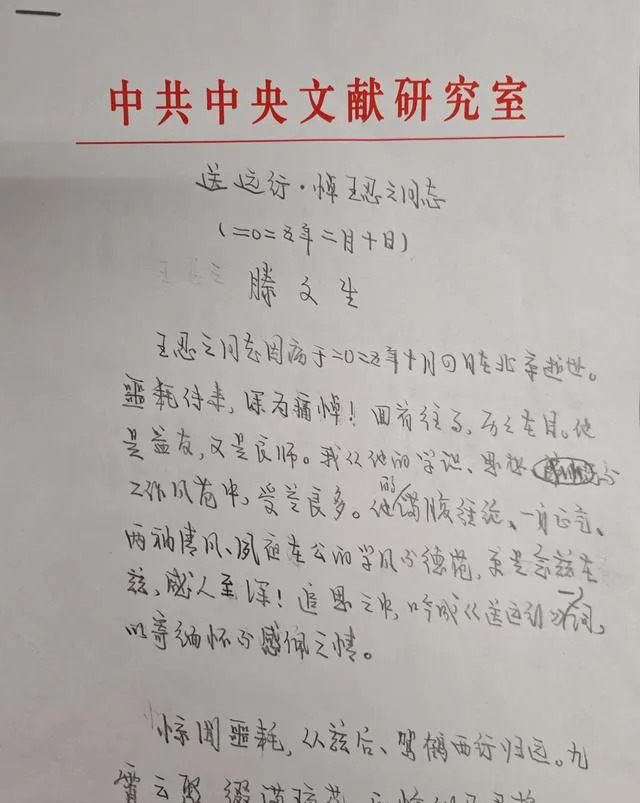 中共中央文献研究室
送远行·悼王忍之同志
(二〇二五年二月十日)
滕文生
王忍之同志因病于二〇二五年十月四日在北京逝世。
噩耗传来,深为痛悼!回首往事,历历在目。他
是益友,又是良师。我从他的学识、思想与
工作风范中,受益良多。他的满腹经纶、一身正气、
两袖清风、夙夜在公的学风与德范,更是念兹在
兹,感人至深!追思之中,吟成《送远行》一词,
以寄缅怀与感佩之情。
惊闻噩耗,从兹后、驾鹤西行归远。九
霄云